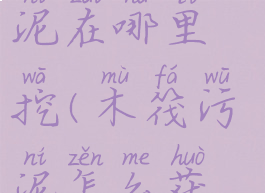 泥在哪里
wā mù fá wū
挖(木筏污
ní zěn me huò
泥怎么获